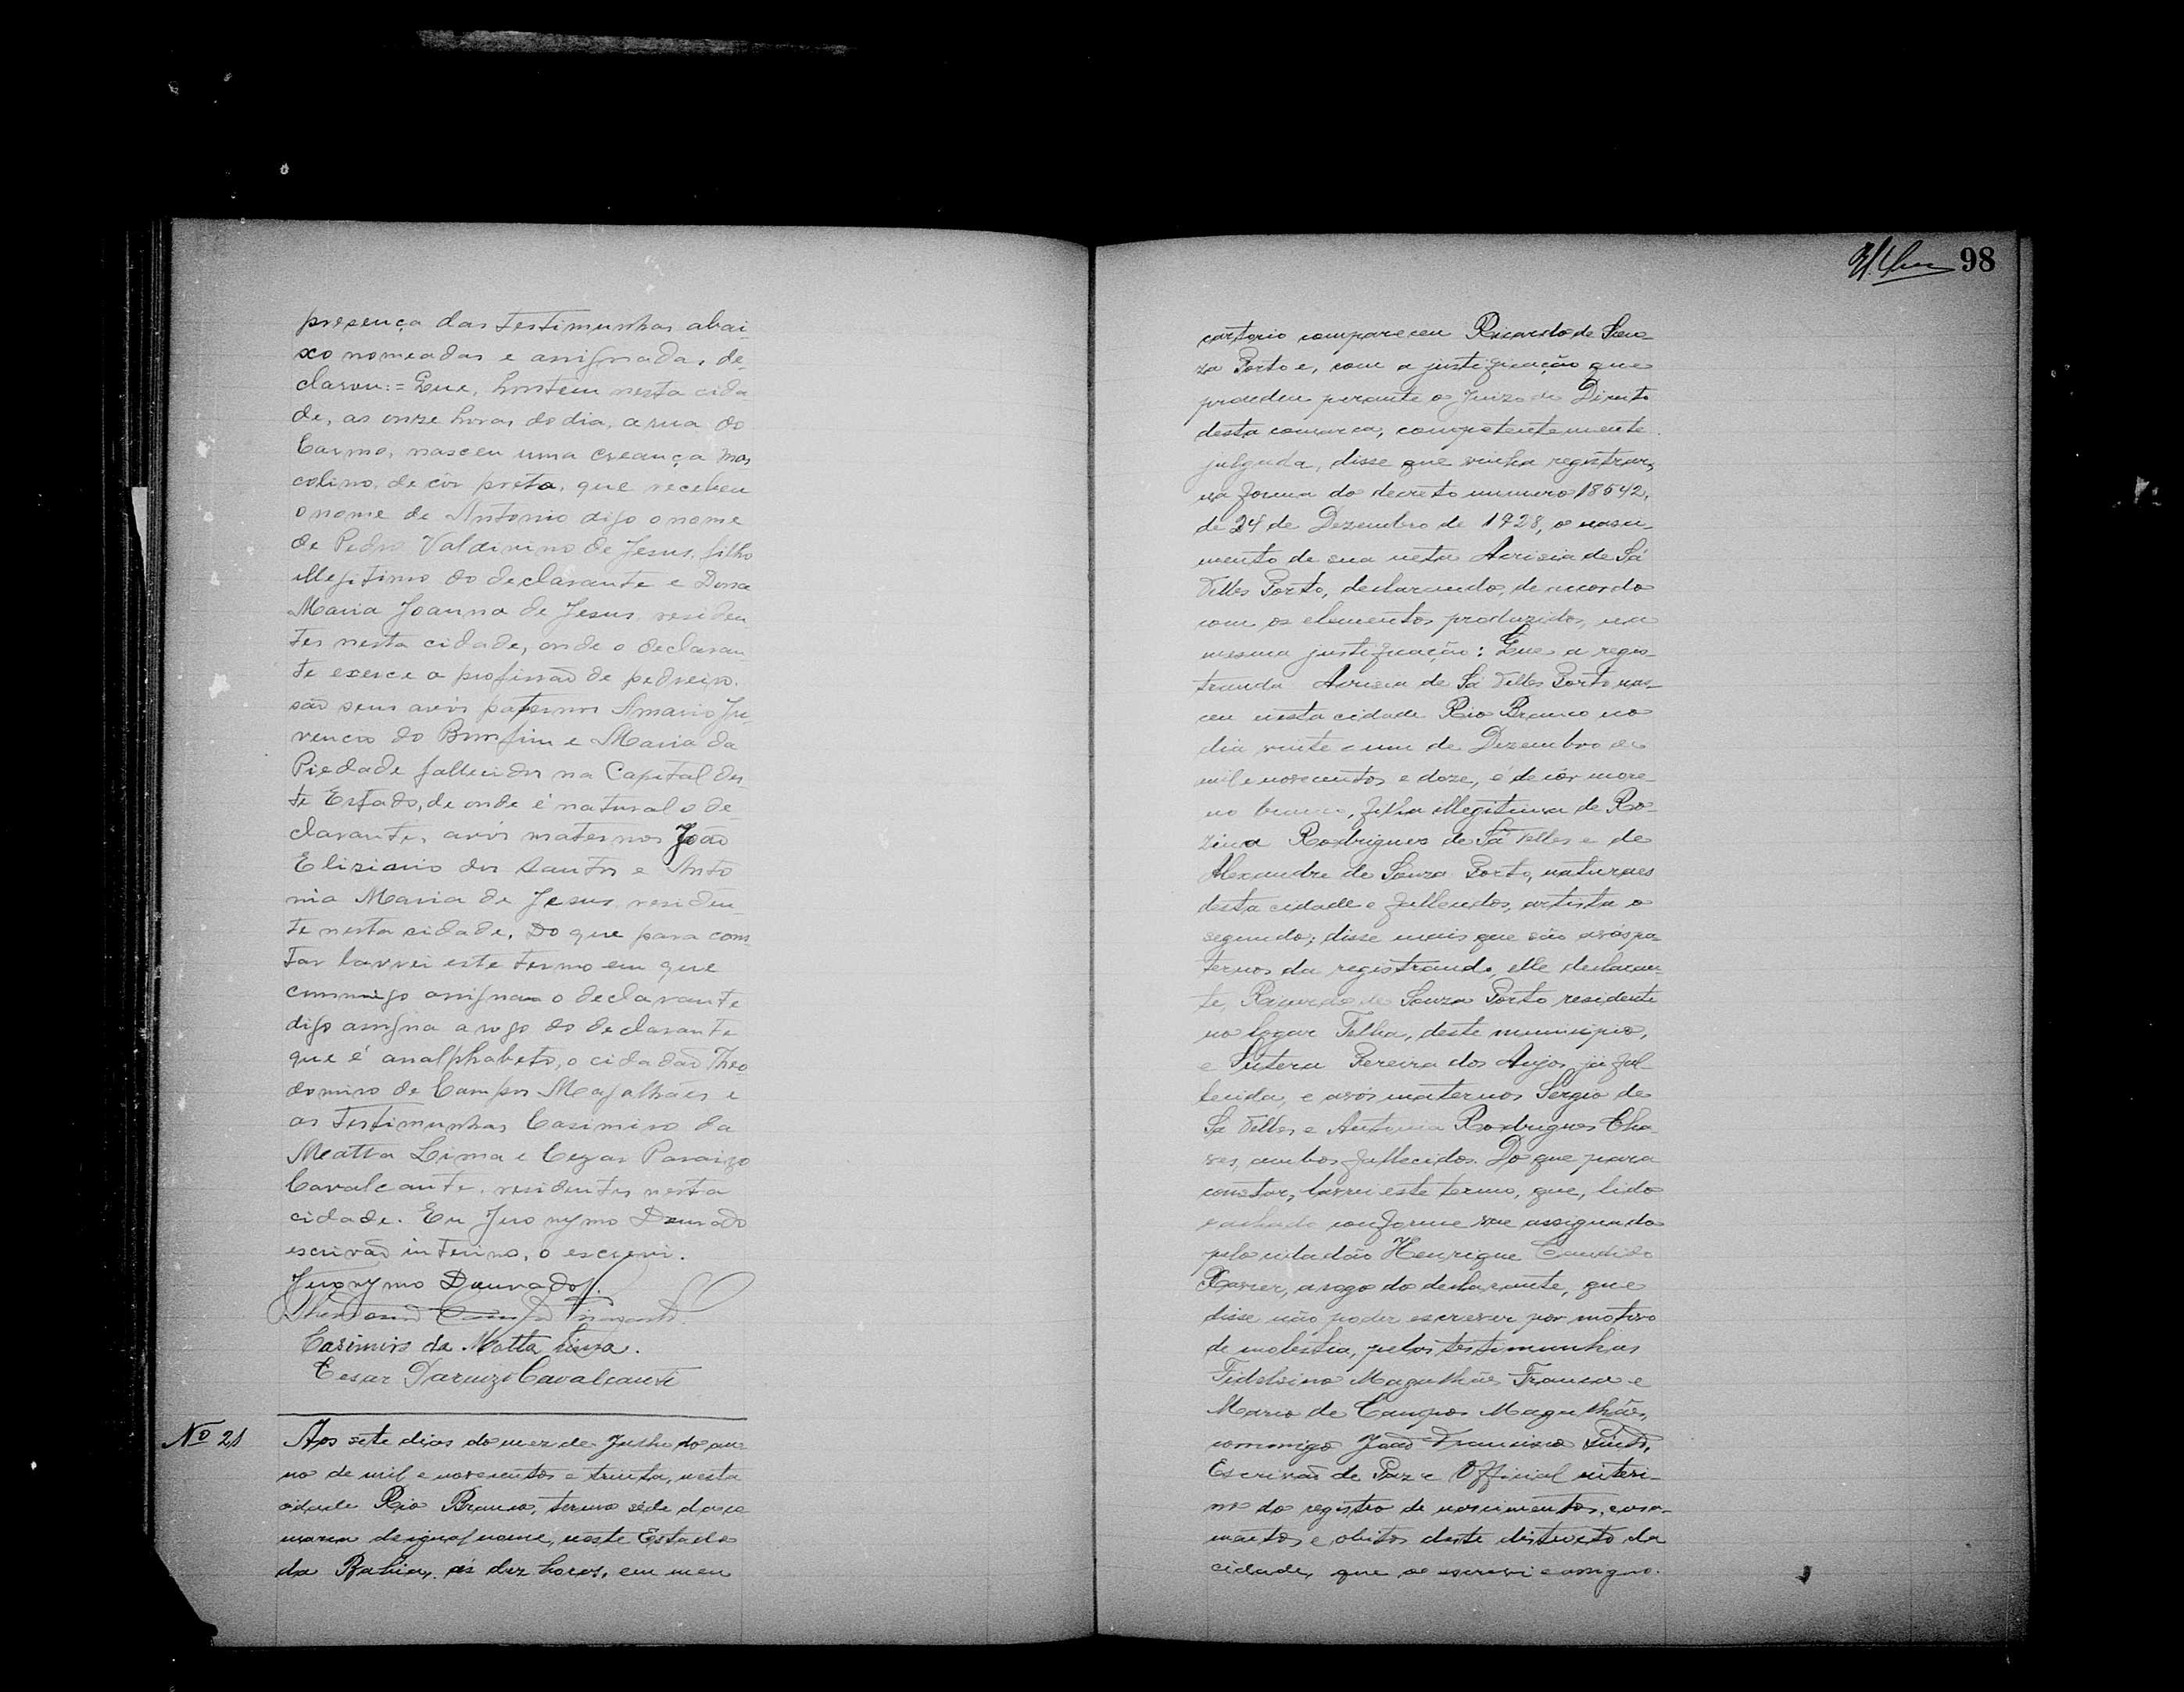 presença das testimunhas abai-
xo nomeadas e assignadas, de-
clarou:= Que, hontem nesta cida-
de, as onze horas do dia, a rua do
Carmo, nasceu uma creança mas
colino, de côr preta, que recebeu
o nome de Antonio digo o nome
de Pedro Valdivino de Jesus, filho
illegitimo do declarante e Dona
Maria Joanna de Jesus, residen
tes nesta cidade, onde o declaran-
te exerce a profissão de pedreiro.
são seus avós paternos Amario Ju-
vencio do Bomfim e Maria da
Piedade fallecidos na Capital des-
te Estado, de onde é natural o de-
clarante, avós maternos João
Elisiario dos Santos e Anto
nia Maria de Jesus, residen-
te nesta cidade. Do que para cons-
tar lavrei este termo em que
commigo assignam o declarante
digo assigna a rogo do declarante
que é analphabeto, o cidadão Theo
domiro de Campos Magalhães e
as testimunhas Casimiro da
Matta Lima e Cezar Paraizo
Cavalcante, residentes nesta
cidade. Eu Jeronymo Dourado
escrivão interino, o escrevi.
Jeronymo Dourado
Casimiro da Matta Lima.
Cesar Paraizo Cavalcante
No 21 Aos sete dias do mez de Julho do an-
no de mil e novecentos e trinta, nesta
cidade Rio Branco, termo séde da co
marca de igual nome, neste Estado
da Bahia, ás dez horas, em meu
98
cartorio compareceu Ricardo de Sou-
za Porto e, com a justificação que
procedeu perante o Juizo de Direito
desta comarca, competentemente
julgada, disse que vinha registrar,
na forma do decreto numero 18542,
de 24 de Dezembro de 1928, o nasci-
mento de sua neta Acrisia de Sá
Telles Porto, declarando, de accordo
com os elementos produzidos, na
mesma justificação: Que a regis-
tranda Acrisia de Sá Telles Porto nas-
ceu nesta cidade Rio Branco no
dia vinte e um de Dezembro de
mil e novecentos e doze, é de côr more-
no branco, filha illegitima de Ro-
zina Rodrigues de Sá Telles e de
Alexandre de Souza Porto, naturaes
desta cidade e fallecidos, artista o
segundo; disse mais que são avós pa-
ternos da registranda, elle declaran-
te, Ricardo de Souza Porto residente
no logar Telha, deste municipio,
e Pereira dos Anjos, já fal-
lecida, e avós maternos Sergio de
Sá Telles e Antonia Rodrigues Cha-
ves, ambos fallecidos. Do que para
constar, lavrei este termo, que, lido
e achado conforme vae assignado
pelo cidadão Henrique Candido
Xavier, a rogo do declarante, que
disse não poder escrever por motivo
de molestia, pelas testimunhas
Fidelsino Magalhães França e
Mario de Campos Magalhães,
commigo João Francisco Pinto,
Escrivão de Paz e Official interi-
no do registro de nascimentos, casa-
mentos e obitos deste districto da
cidade, que o escrevi e assigno.